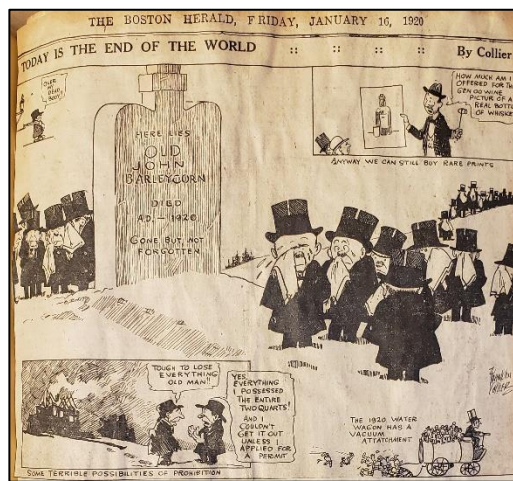 THE BOSTON HERALD, FRIDAY, JANUARY 16, 1920
TODAY IS THE END OF THE WORLD :: :: :: :: By Collier
OVER
MY
DEAD
BODY
HERE LIES
OLD
JOHN
BARLEYCORN
DIED
AD. – 1920
GONE BUT NOT
FORGOTTEN
HOW MUCH AM I
OFFERED FOR THIS
GEN-OO-WINE
PICTUR OF A
REAL BOTTLE
OF WHISKEY
ANYWAY WE CAN STILL BUY RARE PRINTS
TOUGH TO LOSE
EVERYTHING
OLD MAN!!
YES,
EVERYTHING
I POSSESSED
THE ENTIRE
TWO QUARTS!
AND I
COULDN'T
GET IT OUT
UNLESS I
APPLIED FOR
A PERMIT
SOME TERRIBLE POSSIBILITIES OF PROHIBITION
THE 1920 WATER
WAGON HAS A
VACUUM
ATTATCHMENT